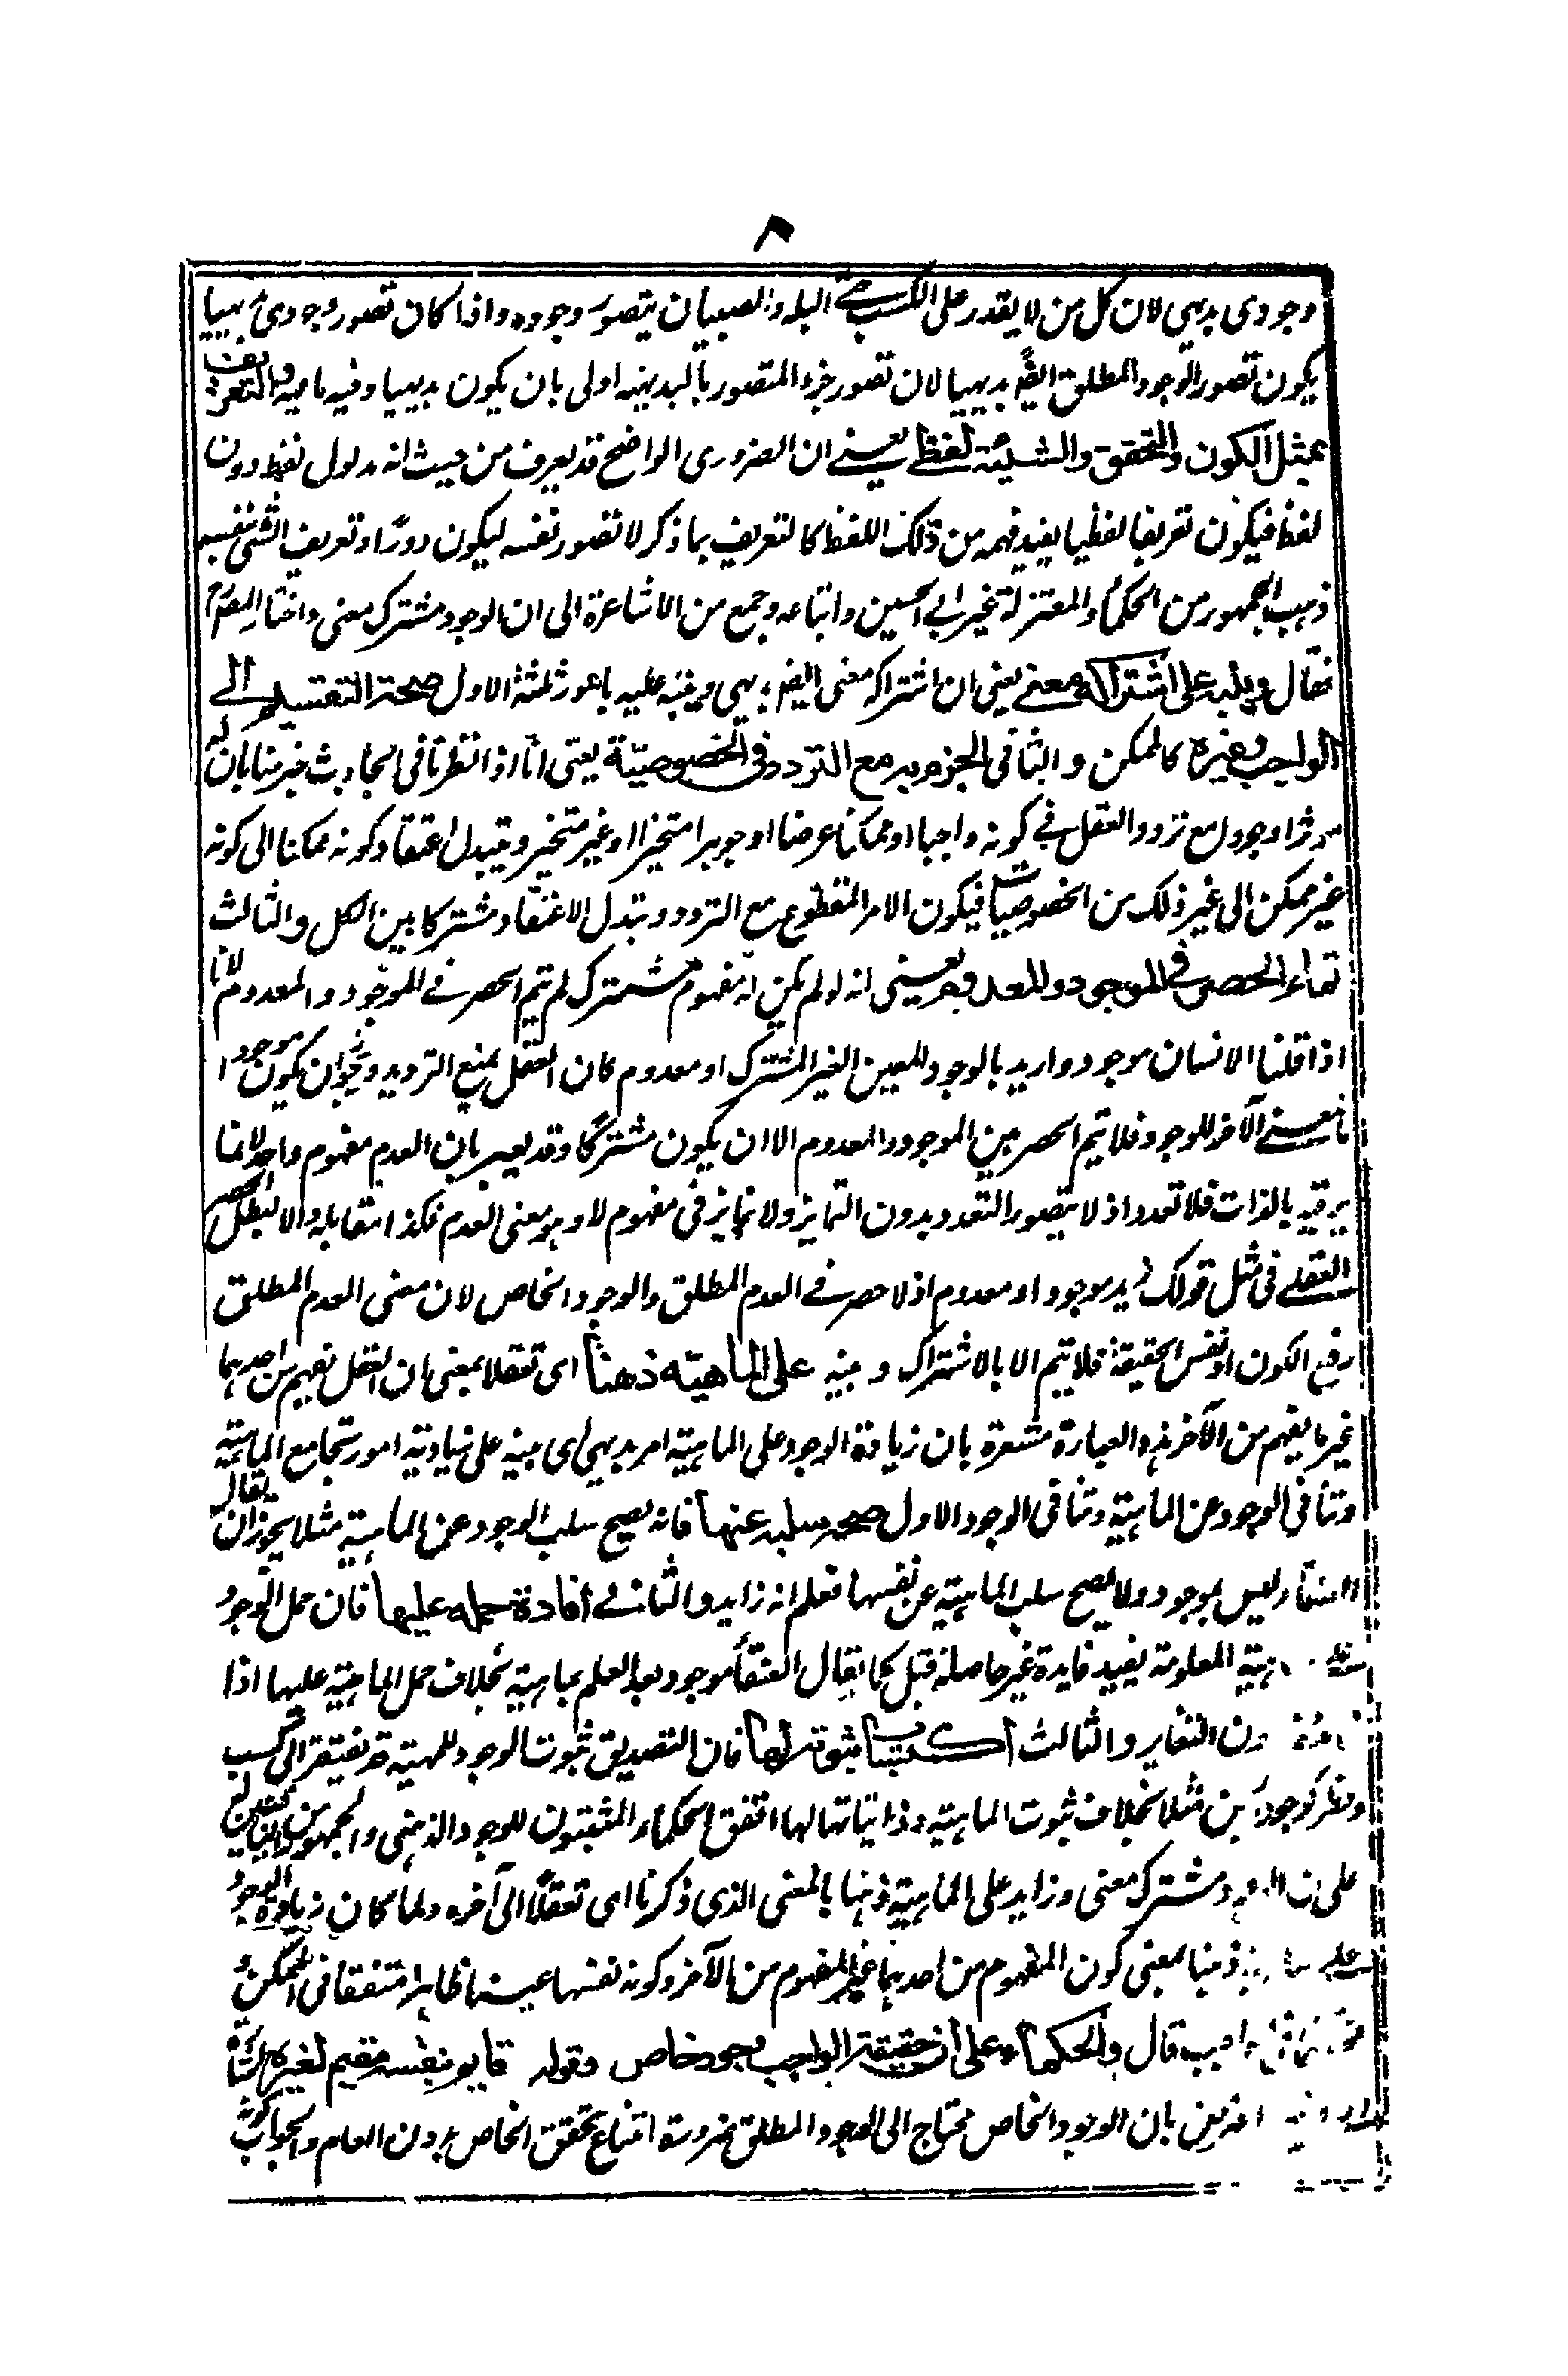 ٨
وجودى بديهى لان كل من لا يقدر على الكسب حتى البله والصبيان يتصور وجوده واذا كان تصور وجودى بديهيا
يكون تصور الوجود المطلق ايضا بديهيا لان تصور جزء المتصور بالبديهة اولى بان يكون بديهيا وفيه ما فيه والتعريف
بمثل الكون والتحقق والشيئية لفظى يعنى ان الضرورى الواضح قد يعرف من حيث انه مدلول لفظ دون
لفظ فيكون تعريفا لفظيا يفيد فهمه من ذلك اللفظ كالتعريف بما ذكر لا تصور نفسه ليكون دورا وتعريف الشئ بنفسه
ذهب الجمهور من الحكماء والمعتزلة غير ابى الحسين واتباعه وجمع من الاشاعرة الى ان الوجود مشترك معنى واختاره المصنف
فقال وينبه على اشتراكه معنى يعنى ان اشتراكه معنى ايضا بديهى وينبه عليه بامور ثلثة الاول صحة التقسيم الى
الواجب وغيره كالممكن والثانى الجزم به مع التردد فى الخصوصية يعنى انا اذا نظرنا فى الحادث جزمنا بان له
مؤثرا موجودا مع تردد العقل فى كونه واجبا او ممكنا عرضا او جوهرا متحيزا او غير متحيز ويتبدل اعتقاد كونه ممكنا الى كونه
غير ممكن الى غير ذلك من الخصوصيات فيكون الامر المقطوع مع التردد وتبدل الاعتقاد مشتركا بين الكل والثالث
تمام الحصر فى الموجود والمعدوم يعنى انه لو لم يكن له مفهوم مشترك لم يتم الحصر فى الموجود والمعدوم لانا
اذا قلنا الانسان موجود واريد بالوجود المعين الغير المشترك او معدوم كان العقل يمنع الترديد ويجوز ان يكون موجودا
بالمعنى الآخر للوجود فلا يتم الحصر بين الموجود والمعدوم الا ان يكون مشتركا وقد يعبر بان العدم مفهوم واحد لا تمايز
فيه بالذات فلا تعدد اذ لا يتصور التعدد بدون التمايز ولا تمايز فى مفهوم لا وهو معنى العدم فكذا مقابله والا لبطل الحصر
العقلى فى مثل قولك زيد موجود او معدوم اذ لا حصر فى العدم المطلق والوجود الخاص لان معنى العدم المطلق
رفع الكون او نفس الحقيقة فلا يتم الا بالاشتراك وينبه على الماهية ذهنا اى تعقلا بمعنى ان العقل يفهم من احدهما
غير ما يفهم من الآخر هذه العبارة مشعرة بان زيادة الوجود على الماهية امر بديهى اى ينبه على زيادته امور تجامع الماهية
وتنافى الوجود عن الماهية وتنافى الوجود الاول صحة سلبه عنها فانه يصح سلب الوجود عن الماهية مثلا يجوز ان يقال
العنقاء ليس بموجود ولا يصح سلب الماهية عن نفسها فعلم انه زايد والثانى افادة حمله عليها فان حمل الوجود
على الماهية المعلومة يفيد فايدة غير حاصلة قبل كما يقال العنقاء موجود بعد العلم بماهيته بخلاف حمل الماهية عليها اذا
دون التغاير والثالث اكتساب ثبوته لها فان التصديق بثبوت الوجود للمهية قد يفتقر الى كسب
ونظر كوجود الجن مثلا بخلاف ثبوت الماهية وذاتياتها لها اتفق الحكماء المثبتون للوجود الذهنى والجمهور من
على ان الوجود مشترك معنى وزايد على الماهية ذهنا بالمعنى الذى ذكرنا اى تعقلا الى آخره ولما كان زيادة الوجود
على الماهية ذهنا بمعنى كون المفهوم من احدهما غير المفهوم من الآخر وكونه نفسها عينا ظاهرا متفقا فى الممكن
الواجب قال والحكماء على ان حقيقة الواجب وجود خاص وقوله قايم بنفسه مقيم لغيره
بان الوجود الخاص محتاج الى الوجود المطلق ضرورة امتناع تحقق الخاص بدون العام والجواب